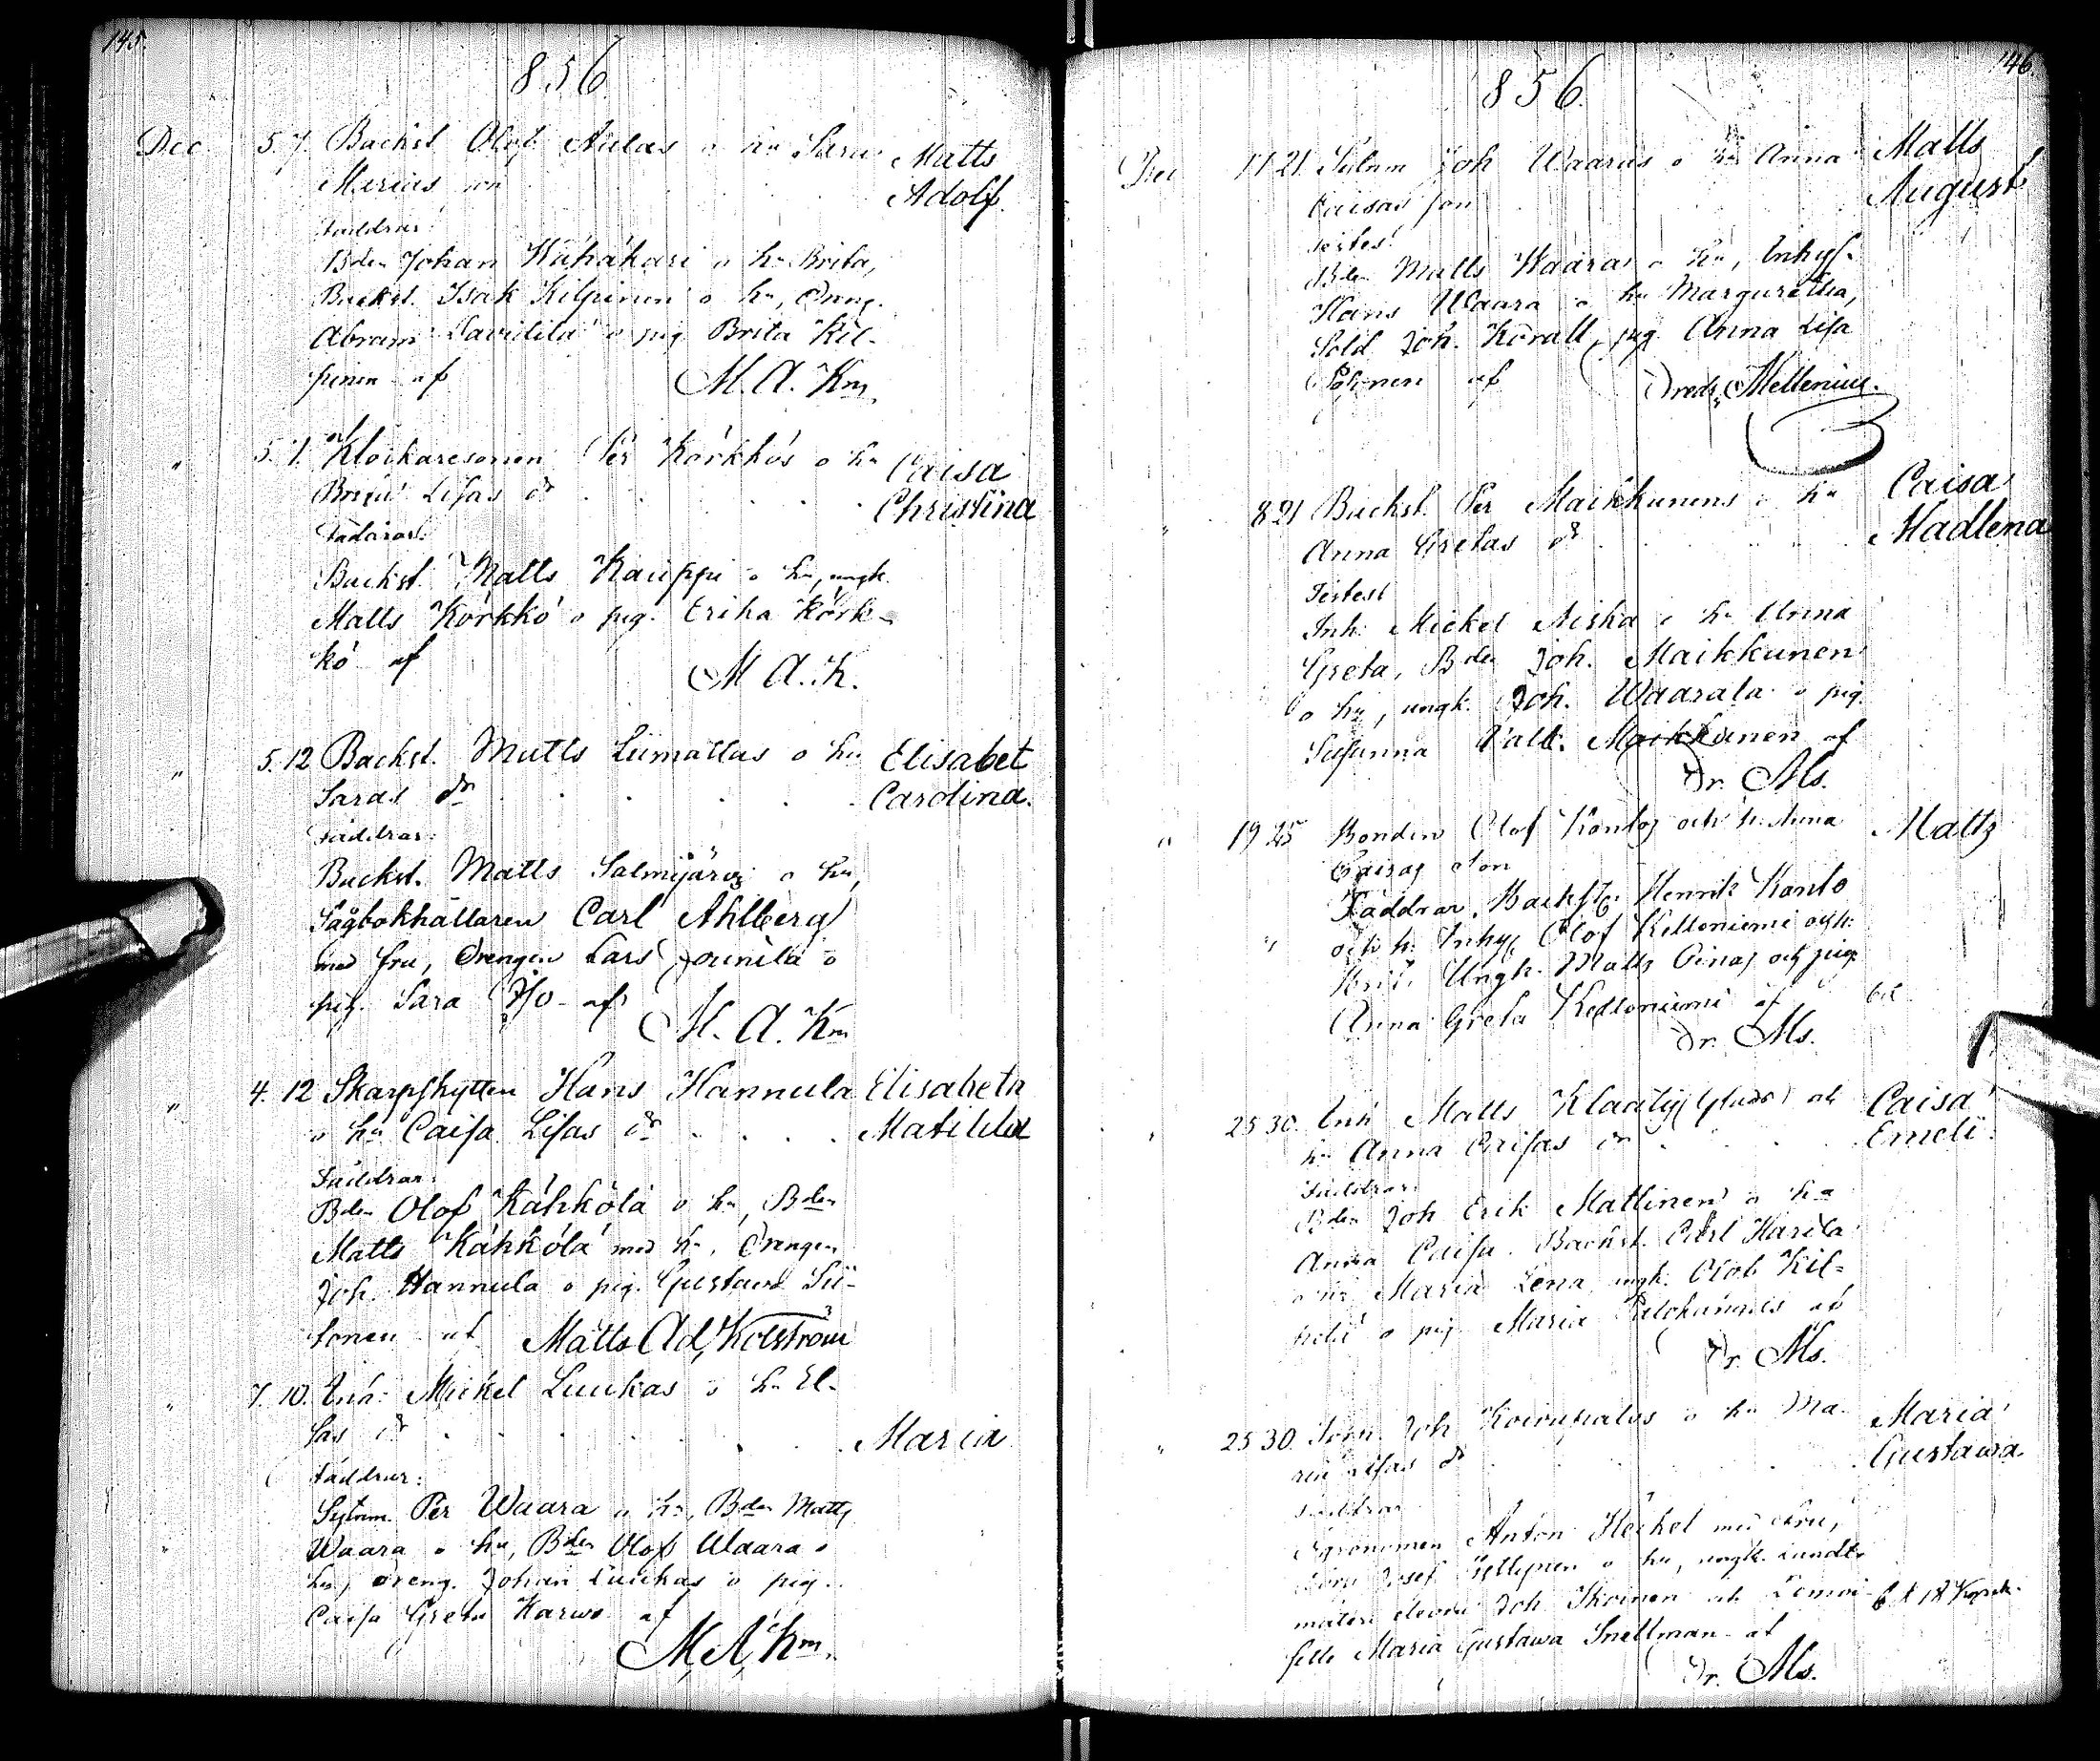 145.
856
Dec 5. 7. Backst Olof Aulas o hu Sara Matts
Marias son Adolf.
Faddrar:
Bden Johan Kähäkari o hu Brita,
Backst. Isak Kilpinen o hu, Dreng.
Abram Lavitila o pig Brita Kil-
pinen af M. A. Km
" 5. 7. Klockaresonen Per Körkkös o hu Caisa
Brita Lisas dr Christina
Faddrar:
Backst. Matts Kauppi o hu, ungk.
Matts Körkkö o pig. Erika Körk-
kö af M. A. K.
" 5. 12 Backst. Matts Liimattas o hu Elisabet
Saras dr Carolina.
Faddrar:
Backst. Matts Salmijärvi o hu,
Sågbokhållaren Carl Ahlberg
med fru, Drengen Lars Jounila o
pig. Sara af M. A. Km
" 4. 12 Skarpskytten Hans Hannula Elisabeth
o hu Caisa Lisas dr Matilda
Faddrar:
Bden Olof Kähkölä o hu, Bden
Matts Kähkölä med hu, Drengen
Joh. Hannula o pig. Gustava Sii-
tonen af Matts Ad. Kolström
" 7. 10. Inh. Mickel Luukas o hu El-
sas dr Maria
Faddrar:
Sytnm. Per Waara o hu, Bden Matts
Waara o hu, Bden Olof Waara o
hu, Dreng. Johan Luukas o pig.
Caisa Greta Karwo af
M. A. Km.
146.
856.
Dec 17 21. Sytnm Joh Waaras o hu Anna Matts
Caisas son August
Testes:
Bden Matts Waara o hu, Inhys.
Hans Waara o hu Margaretha,
Sold. Joh. Korall, pig. Anna Lisa
af Mellenius.
8 21 Backst. Per Maikkunens o hu Caisa
Anna Gretas dr Madlena
Testes:
Inh. Mickel Niska o hu Anna
Greta, Bden Joh. Maikkunen
o hu, ungk. Joh. Waarala o pig.
Susanna Maikkunen af
Dr. Ms.
" 19 25 Bonden Olof Kontos och h. Anna Matts
Caisas son
Faddrar. Backst. Henrik Konto
och h. Inhys. Olof Keltoniemi och h.
Ungk. Matts och pig.
Anna Greta Keltoniemi af
Dr. Ms.
" 25 30. Inh Matts Klaaty och Caisa
hu Anna Caisas dr Emeli.
Faddrar:
Bden Joh Erik Mattinen o hu
Anna Caisa. Backst. Carl Harila
o hu Maria Lena, ungk. Olof Kil-
o pig. Maria af
Dr. Ms.
" 25 30. Joh o hu Ma- Maria
ria Lisas dr Gustawa
Faddrar
Agronomen Anton Heikel med fru,
Josef o hu, ungk. Landt-
mäteri eleven Joh Ikonen och
selle Maria Gustawa Snellman af
Dr. Ms.